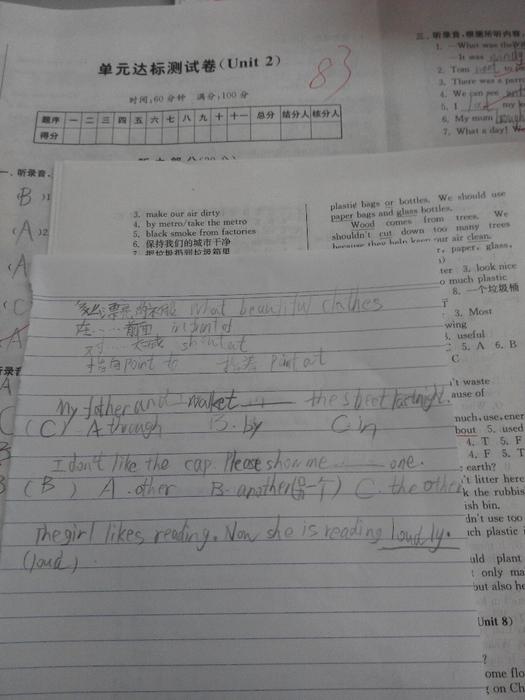 单元达标测试卷(Unit 2)
83
时间:60分钟 满分:100分
题序 一 二 三 四 五 六 七 八 九 十 十一 总分 结分人 核分人
得分
一、听录音,
B )1
(A )2
(A
(C
三、听录音,根据所听内容,
1. —What was the
—It was
2. Tom
3. There was a
4. We can see
5. I my
6. My mum
7. What a day!
3. make our air dirty
4. by metro/take the metro
5. black smoke from factories
6. 保持我们的城市干净
7. 把垃圾扔到垃圾箱里
plastic bags or bottles. We should use
paper bags and glass bottles.
Wood comes from trees. We
shouldn't cut down too many trees
because they help keep our air clean.
r, paper, glass,
ter 3. look nice
o much plastic
8. 一个垃圾桶
3. Most
wing
5. useful
5. A 6. B
C
't waste
ause of
much, use, ener
bout 5. used
4. T 5. F
4. F 5. T
earth?
't litter here
k the rubbis
ish bin.
dn't use too
ch plastic
uld plant
only ma
but also he
Unit 8)
?
ome flo
on Ch
多么漂亮的衣服 What beautiful clothes
在……前面 in front of
对……大喊 shout at
指向 point to 指法 point at
My father and I walket ___ the street last night.
(C) A. through B. by C. in
I don't like the cap. Please show me ___ one.
(B) A. other B. another C. the other
The girl likes reading. Now she is reading loudly.
(loud)